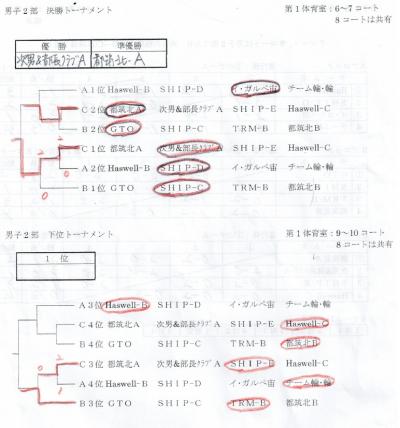 男子2部 決勝トーナメント
第1体育室:6~7コート
8コートは共有
優勝 準優勝
次男&部長クラブA 都筑北-A
A1位 Haswell-B SHIP-D イ・ガルペ宙 チーム輪・輪
C2位 都筑北A 次男&部長クラブA SHIP-E Haswell-C
B2位 GTO SHIP-C TRM-B 都筑北B
2
C1位 都筑北A 次男&部長クラブA SHIP-E Haswell-C
2
A2位 Haswell-B SHIP-D イ・ガルペ宙 チーム輪・輪
0
B1位 GTO SHIP-C TRM-B 都筑北B
0
男子2部 下位トーナメント
第1体育室:9~10コート
8コートは共有
1位
A3位 Haswell-B SHIP-D イ・ガルペ宙 チーム輪・輪
C4位 都筑北A 次男&部長クラブA SHIP-E Haswell-C
B4位 GTO SHIP-C TRM-B 都筑北B
2
C3位 都筑北A 次男&部長クラブA SHIP-E Haswell-C
0
A4位 Haswell-B SHIP-D イ・ガルペ宙 チーム輪・輪
2
B3位 GTO SHIP-C TRM-B 都筑北B